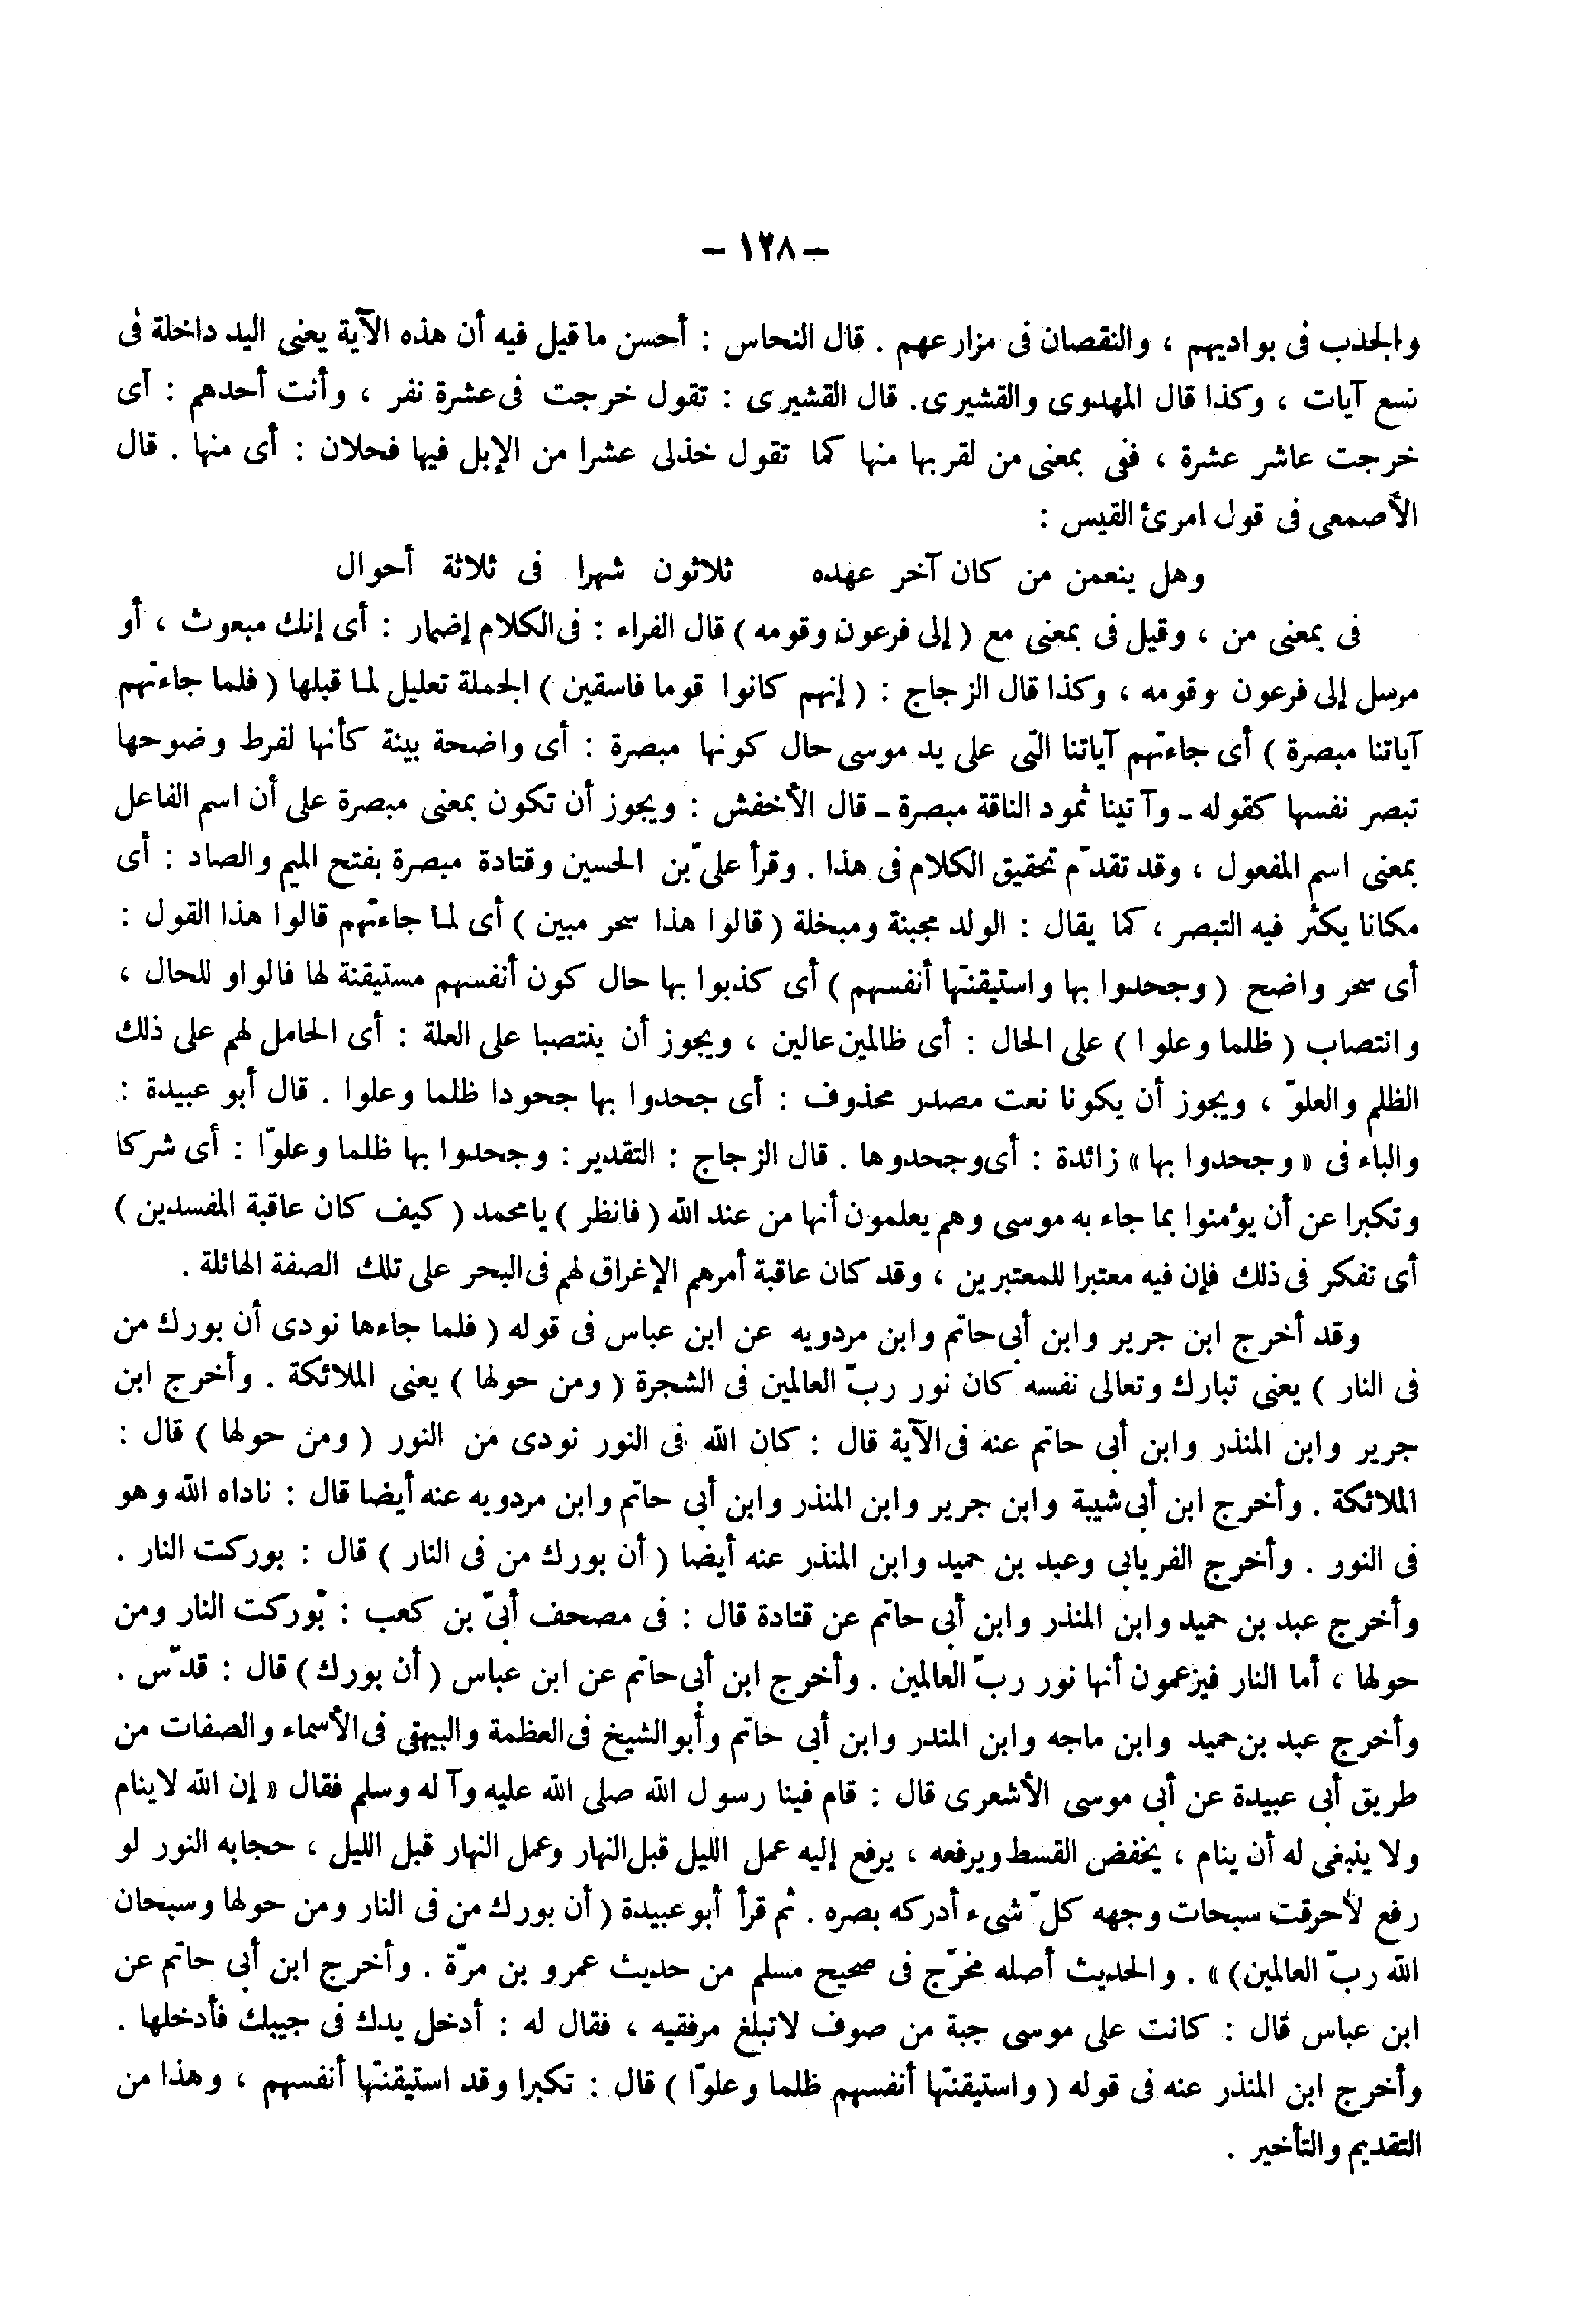 - ١٢٨ -
والجدب فى بواديهم ، والنقصان فى مزارعهم . قال النحاس : أحسن ما قيل فيه أن هذه الآية يعنى اليد داخلة فى
تسع آيات ، وكذا قال المهدوى والقشيرى. قال القشيرى : تقول خرجت فى عشرة نفر ، وأنت أحدهم : أى
خرجت عاشر عشرة ، ففى بمعنى من لقربها منها كما تقول خذلى عشرا من الإبل فيها فحلان : أى منها . قال
الأصمعى فى قول امرئ القيس :
وهل ينعمن من كان آخر عهده ثلاثون شهرا فى ثلاثة أحوال
فى بمعنى من ، وقيل فى بمعنى مع ( إلى فرعون وقومه ) قال الفراء : فى الكلام إضمار : أى إنك مبعوث ، أو
مرسل إلى فرعون وقومه ، وكذا قال الزجاج : ( إنهم كانوا قوما فاسقين ) الجملة تعليل لما قبلها ( فلما جاءتهم
آياتنا مبصرة ) أى جاءتهم آياتنا التى على يد موسى حال كونها مبصرة : أى واضحة بينة كأنها لفرط وضوحها
تبصر نفسها كقوله ـ وآتينا ثمود الناقة مبصرة ـ قال الأخفش : ويجوز أن تكون بمعنى مبصرة على أن اسم الفاعل
بمعنى اسم المفعول ، وقد تقدّم تحقيق الكلام فى هذا . وقرأ علىّ بن الحسين وقتادة مبصرة بفتح الميم والصاد : أى
مكانا يكثر فيه التبصر ، كما يقال : الولد مجبنة ومبخلة ( قالوا هذا سحر مبين ) أى لما جاءتهم قالوا هذا القول :
أى سحر واضح ( وجحدوا بها واستيقنتها أنفسهم ) أى كذبوا بها حال كون أنفسهم مستيقنة لها فالواو للحال ،
وانتصاب ( ظلما وعلوا ) على الحال : أى ظالمين عالين ، ويجوز أن ينتصبا على العلة : أى الحامل لهم على ذلك
الظلم والعلوّ ، ويجوز أن يكونا نعت مصدر محذوف : أى جحدوا بها جحودا ظلما وعلوا . قال أبو عبيدة :
والباء فى « وجحدوا بها » زائدة : أى وجحدوها . قال الزجاج : التقدير : وجحدوا بها ظلما وعلوّا : أى شركا
وتكبرا عن أن يؤمنوا بما جاء به موسى وهم يعلمون أنها من عند الله ( فانظر ) يا محمد ( كيف كان عاقبة المفسدين )
أى تفكر فى ذلك فإن فيه معتبرا للمعتبرين ، وقد كان عاقبة أمرهم الإغراق لهم فى البحر على تلك الصفة الهائلة .
وقد أخرج ابن جرير وابن أبى حاتم وابن مردويه عن ابن عباس فى قوله ( فلما جاءها نودى أن بورك من
فى النار ) يعنى تبارك وتعالى نفسه كان نور ربّ العالمين فى الشجرة ( ومن حولها ) يعنى الملائكة . وأخرج ابن
جرير وابن المنذر وابن أبى حاتم عنه فى الآية قال : كان الله فى النور نودى من النور ( ومن حولها ) قال :
الملائكة . وأخرج ابن أبى شيبة وابن جرير وابن المنذر وابن أبى حاتم وابن مردويه عنه أيضا قال : ناداه الله وهو
فى النور . وأخرج الفريابى وعبد بن حميد وابن المنذر عنه أيضا ( أن بورك من فى النار ) قال : بوركت النار .
وأخرج عبد بن حميد وابن المنذر وابن أبى حاتم عن قتادة قال : فى مصحف أبىّ بن كعب : بوركت النار ومن
حولها ، أما النار فيزعمون أنها نور ربّ العالمين . وأخرج ابن أبى حاتم عن ابن عباس ( أن بورك ) قال : قدّس .
وأخرج عبد بن حميد وابن ماجه وابن المنذر وابن أبى حاتم وأبو الشيخ فى العظمة والبيهقى فى الأسماء والصفات من
طريق أبى عبيدة عن أبى موسى الأشعرى قال : قام فينا رسول الله صلى الله عليه وآله وسلم فقال « إن الله لا ينام
ولا ينبغى له أن ينام ، يخفض القسط ويرفعه ، يرفع إليه عمل الليل قبل النهار وعمل النهار قبل الليل ، حجابه النور لو
رفع لأحرقت سبحات وجهه كلّ شىء أدركه بصره . ثم قرأ أبو عبيدة ( أن بورك من فى النار ومن حولها وسبحان
الله ربّ العالمين) » . والحديث أصله مخرّج فى صحيح مسلم من حديث عمرو بن مرّة . وأخرج ابن أبى حاتم عن
ابن عباس قال : كانت على موسى جبة من صوف لا تبلغ مرفقيه ، فقال له : أدخل يدك فى جيبك فأدخلها .
وأخرج ابن المنذر عنه فى قوله ( واستيقنتها أنفسهم ظلما وعلوّا ) قال : تكبرا وقد استيقنتها أنفسهم ، وهذا من
التقديم والتأخير .